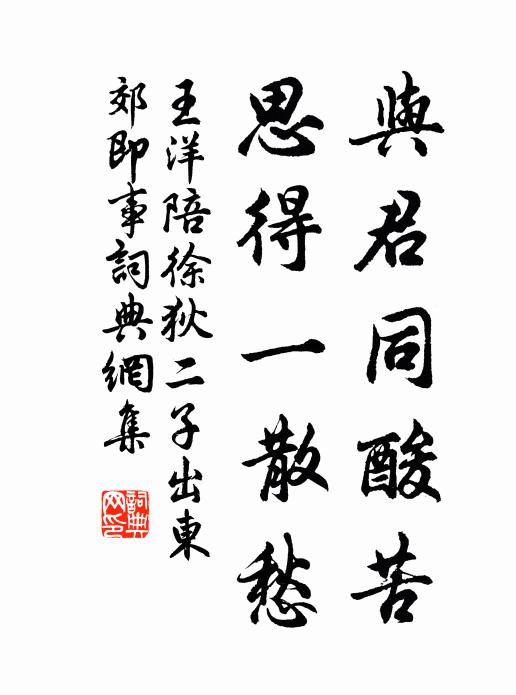 與君同酸苦
思得一散愁
王洋陪徐狄二子出東
郊即事詞典網集
詞典网印